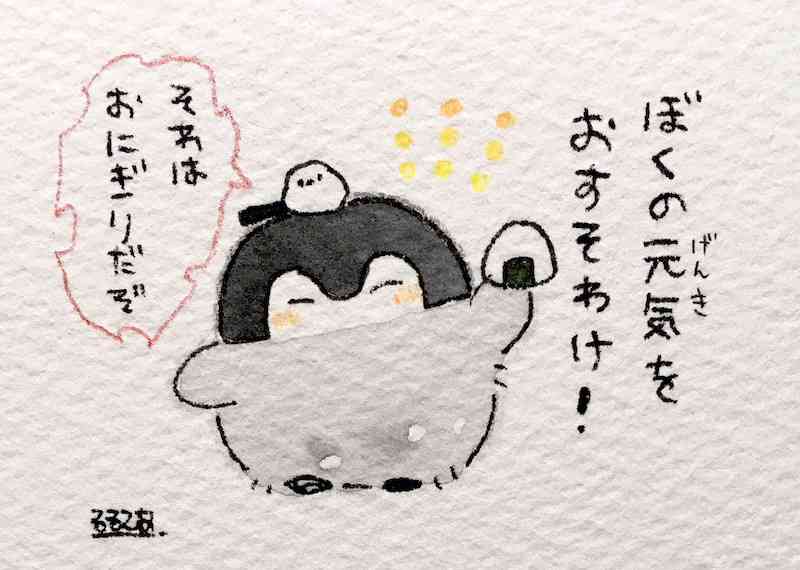 ぼくの元気を
げんき
おすそわけ！
それは
おにぎりだぞ
るるてあ